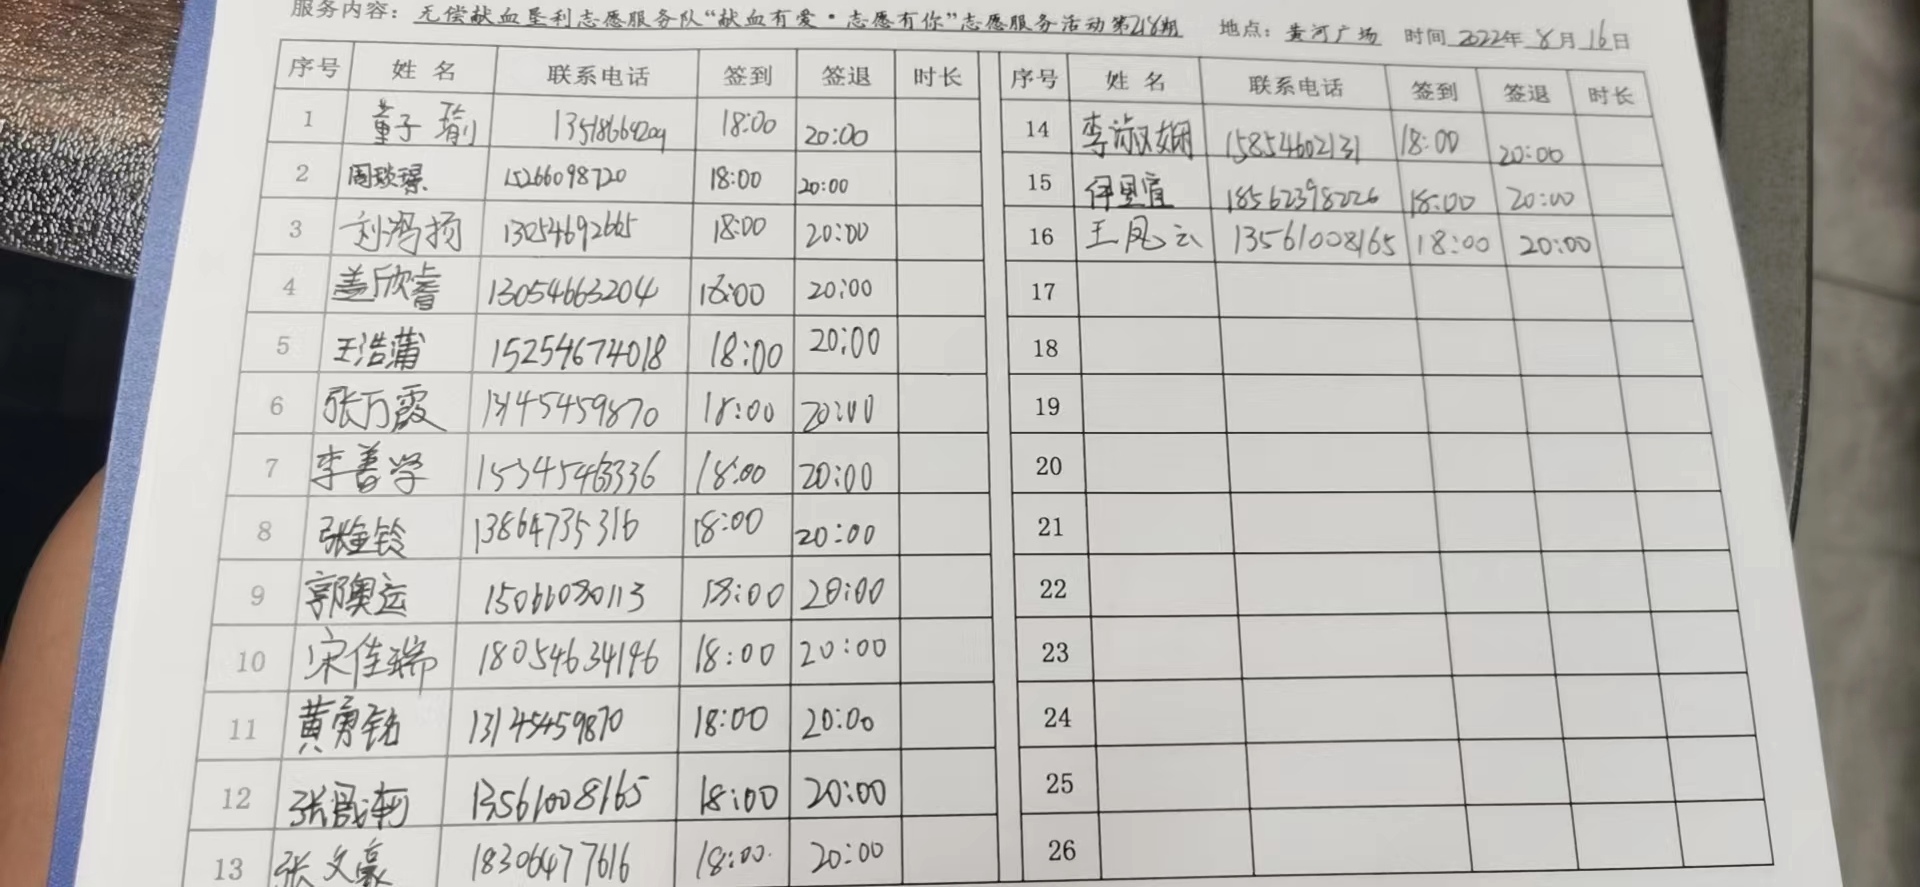 服务内容：无偿献血垦利志愿服务队“献血有爱·志愿有你”志愿服务活动第218期 地点：黄河广场 时间 2022年 8月 16日
序号 姓名 联系电话 签到 签退 时长 序号 姓名 联系电话 签到 签退 时长
1 董子瑜 13518664209 18:00 20:00 14 李淑娴 15854602131 18:00 20:00
2 周琰璟 15266098720 18:00 20:00 15 伊里宣 18562398226 18:00 20:00
3 刘鸿扬 13054692665 18:00 20:00 16 王凤云 13561008165 18:00 20:00
4 盖欣睿 13054663204 18:00 20:00 17
5 王浩蒲 15254674018 18:00 20:00 18
6 张万霞 13145459870 18:00 20:00 19
7 李善学 15345463336 18:00 20:00 20
8 张金铃 13864735316 18:00 20:00 21
9 郭奥运 15066080113 18:00 20:00 22
10 宋佳瑞 18054634196 18:00 20:00 23
11 黄勇铭 13145459870 18:00 20:00 24
12 张 13561008165 18:00 20:00 25
13 张文豪 18306477616 18:00 20:00 26